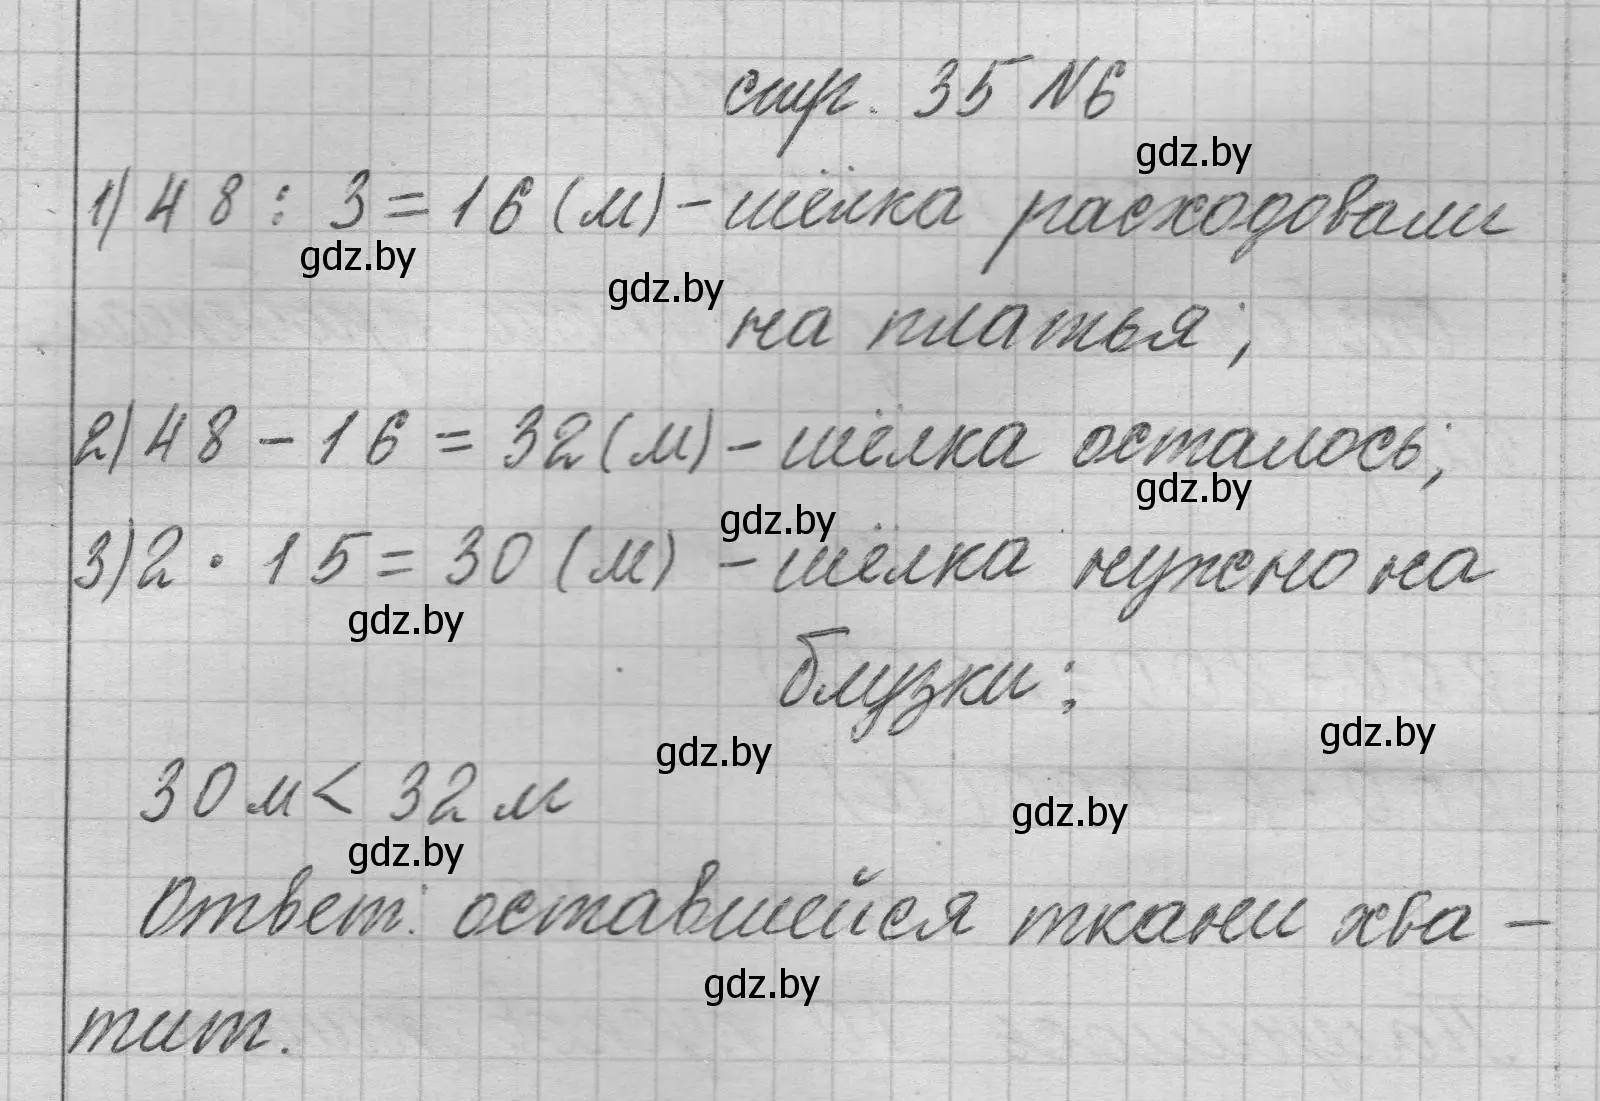 стр. 35 №6
gdz.by
1) 48 : 3 = 16 (м) - шёлка расходовали
gdz.by
gdz.by
на платья;
2) 48 - 16 = 32 (м) - шёлка осталось;
gdz.by
gdz.by
3) 2 · 15 = 30 (м) - шёлка нужно на
gdz.by
блузки;
gdz.by
gdz.by
30 м < 32 м
gdz.by
gdz.by
Ответ: оставшейся ткани хва-
gdz.by
тит.